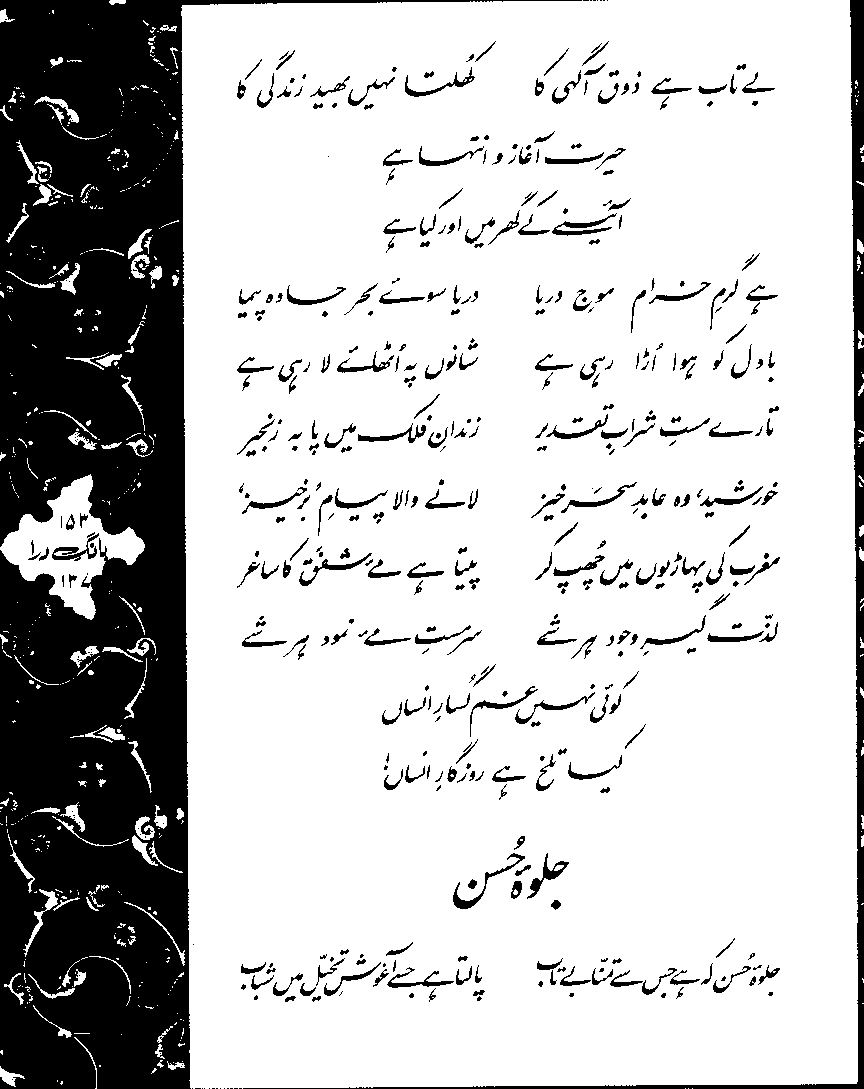 بے تاب ہے ذوق آگہی کا کھُلتا نہیں بھید زندگی کا
حیرت آغاز و انتہا ہے
آئینے کے گھر میں اور کیا ہے
ہے گرمِ خرام موجِ دریا دریا سوئے بحر جادہ پیما
بادل کو ہوا اُڑا رہی ہے شانوں پہ اُٹھائے لا رہی ہے
تارے مستِ شرابِ تقدیر زندانِ فلک میں پا بہ زنجیر
خورشید، وہ عابدِ سحَر خیز لانے والا پیامِ ’برخیز‘
مغرب کی پہاڑیوں میں چھُپ کر پیتا ہے مےَ شفَق کا ساغر
لذّت گیرِ وجود ہر شے سرمستِ مےَ نمود ہر شے
کوئی نہیں غم گُسارِ انساں
کیا تلخ ہے روزگارِ انساں!
جلوۂ حُسن
جلوۂ حُسن کہ ہے جس سے تمنّا بے تاب پالتا ہے جسے آغوشِ تخیّل میں شباب
۱۵۳
بانگِ درا
۱۳۷